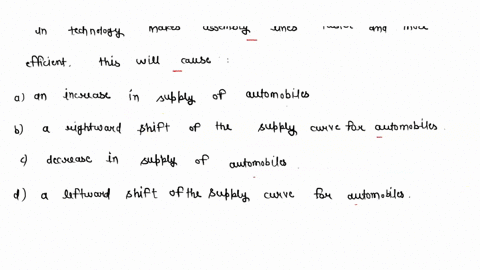 in technology makes assembly lines faster and more
efficient. this will cause :
a) an increase in supply of automobiles
b) a rightward shift of the supply curve for automobiles.
c) decrease in supply of automobiles.
d) a leftward shift of the supply curve for automobiles.